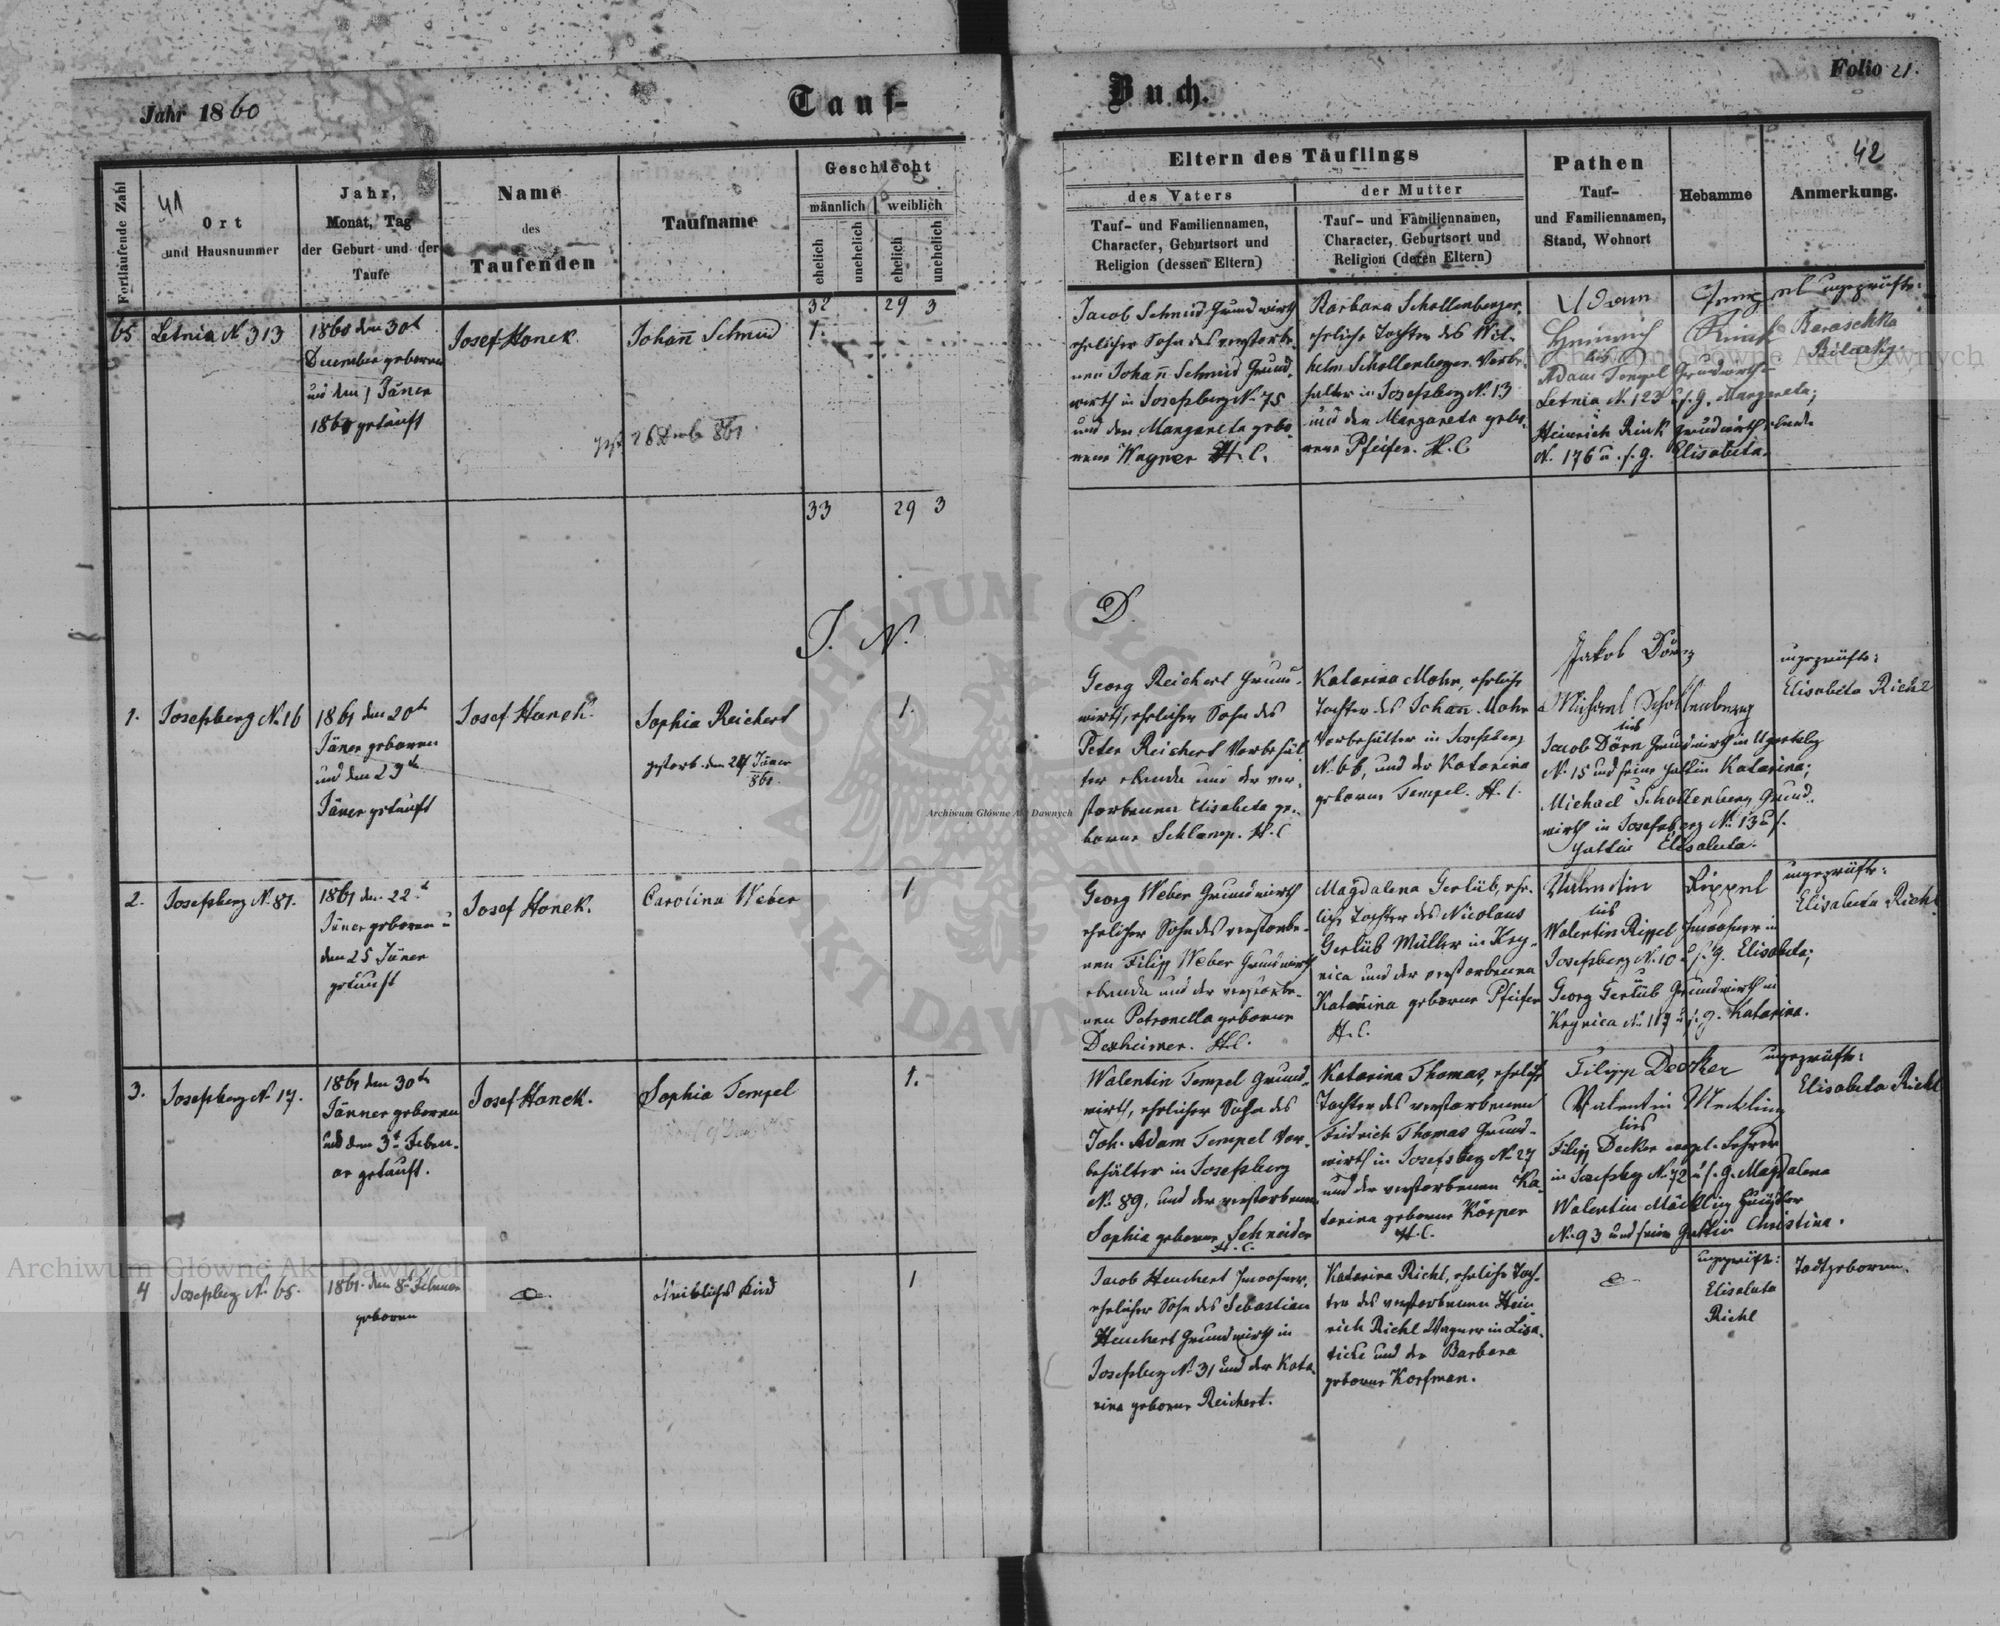 Jahr 1860
Tauf-
Buch.
Folio 21.
Fortlaufende Zahl
41
Ort
und Hausnummer
Jahr,
Monat, Tag
der Geburt und der
Taufe
Name
des
Taufenden
Taufname
Geschlecht
männlich
weiblich
ehelich
unehelich
ehelich
unehelich
Eltern des Täuflings
des Vaters
Tauf- und Familiennamen,
Character, Geburtsort und
Religion (dessen Eltern)
der Mutter
Tauf- und Familiennamen,
Character, Geburtsort und
Religion (deren Eltern)
Pathen
Tauf-
und Familiennamen,
Stand, Wohnort
Hebamme
42
Anmerkung.
32 29 3
65
Letnia N 313
1860 den 30t
December geboren
und den 1 Jäner
getauft
Josef Honek.
Johann Schmid
26 861
1.
Jacob Schmid Grundwirth
ehelicher Sohn des verstorbe-
nen Johann Schmid Grund-
wirth in Josefsberg N. 75
und der Margareta gebo-
rene Wagner H.C.
Barbara Schollenberger,
eheliche Tochter des Wil-
helm Schollenberger Vorbe-
halter in Josefsberg N. 13
und der Margareta gebo-
rene Pfeifer. H.C
Adam
Heinrich Rink
Adam Tempel Grundwirth
Letnia N. 123 u. s. g. Margareta;
Heinrich Rink Grundwirth ebenda
N. 176 u. s. g. Elisabeta.
ungeprüfte:
Baraschka
33 29 3
I. N. D.
1.
Josefsberg N. 16
1861 den 20te
Jäner geboren
und den 23te
Jäner getauft
Josef Honek.
Sophia Reichert
gestorb. den Jäner
861.
1.
Georg Reichert Grund-
wirth, ehelicher Sohn des
Peter Reichert Vorbehäl-
ter ebenda und der ver-
storbenen Elisabeta ge-
borne Schlamp. H.C
Katarina Mohr, eheliche
Tochter des Johann Mohr
Vorbehälter in Josefsberg
N. 66, und der Katarina
geborne Tempel. H.C.
Jakob Dörn
Michael Schollenberg
Jacob Dörn Grundwirth in Ugartsberg
N. 15 und seine Gattin Katarina;
Michael Schollenberg Grund-
wirth in Josefsberg N. 13 u s.
Gattin Elisabeta.
ungeprüfte:
Elisabeta Riehl
2.
Josefsberg N. 87.
1861 den 22t
Jäner geboren u
den 25 Jäner
getauft
Josef Honek.
Carolina Weber
1
Georg Weber Grundwirth
ehelicher Sohn des verstorbe-
nen Filipp Weber Grundwirth
ebenda und der verstorbe-
nen Petronella geborne
Dexheimer. H.C.
Magdalena Gerlüb, ehe-
liche Tochter des Nicolaus
Gerlüb Müller in Kry-
nica und der verstorbenen
Katarina geborne Pfeifer
H.C.
Valentin Rippel
Walentin Rippel Inwohner in
Josefsberg N. 10 u s. g. Elisabeta;
Georg Gerlüb Grundwirth in
Krynica N. 117 u. s. g. Katarina.
ungeprüfte:
Elisabeta Riehl
3.
Josefsberg N. 17.
1861 den 30te
Jänner geboren
und den 3t Febru-
ar getauft.
Josef Honek.
Sophia Tempel
1.
Walentin Tempel Grund-
wirth, ehelicher Sohn des
Joh. Adam Tempel Vor-
behälter in Josefsberg
N. 89, und der verstorbenen
Sophia geborne Schneider
H.C.
Katarina Thomas, eheliche
Tochter des verstorbenen
Fridrich Thomas Grund-
wirth in Josefsberg N. 27
und der verstorbenen Ka-
tarina geborne Körper
H.C.
Filipp Decker
Valentin Mechling
Filipp Decker evgel. Lehrer
in Josefsberg N. 72 u s. g. Magdalena
Walentin Mächling Häusler
N. 93 und seine Gattin Christina.
ungeprüfte:
Elisabeta Riehl
4
Josefsberg N. 65.
1861 den 8t Februar
geboren
Weibliches Kind
1
Jacob Heuchert Inwohner,
ehelicher Sohn des Sebastian
Heuchert Grundwirth in
Josefsberg N. 31 und der Kata-
rina geborne Reichert.
Katarina Richl, eheliche Toch-
ter des verstorbenen Hein-
rich Richl Wagner in Lisa-
ticze und der Barbara
geborne Korfman.
ungeprüft:
Elisabeta
Riehl
Todtgeboren.
Archiwum Główne Akt Dawnych
Archiwum Główne Akt Dawnych
Archiwum Główne Akt Dawnych
ARCHIWUM GŁÓWNE AKT DAWNYCH